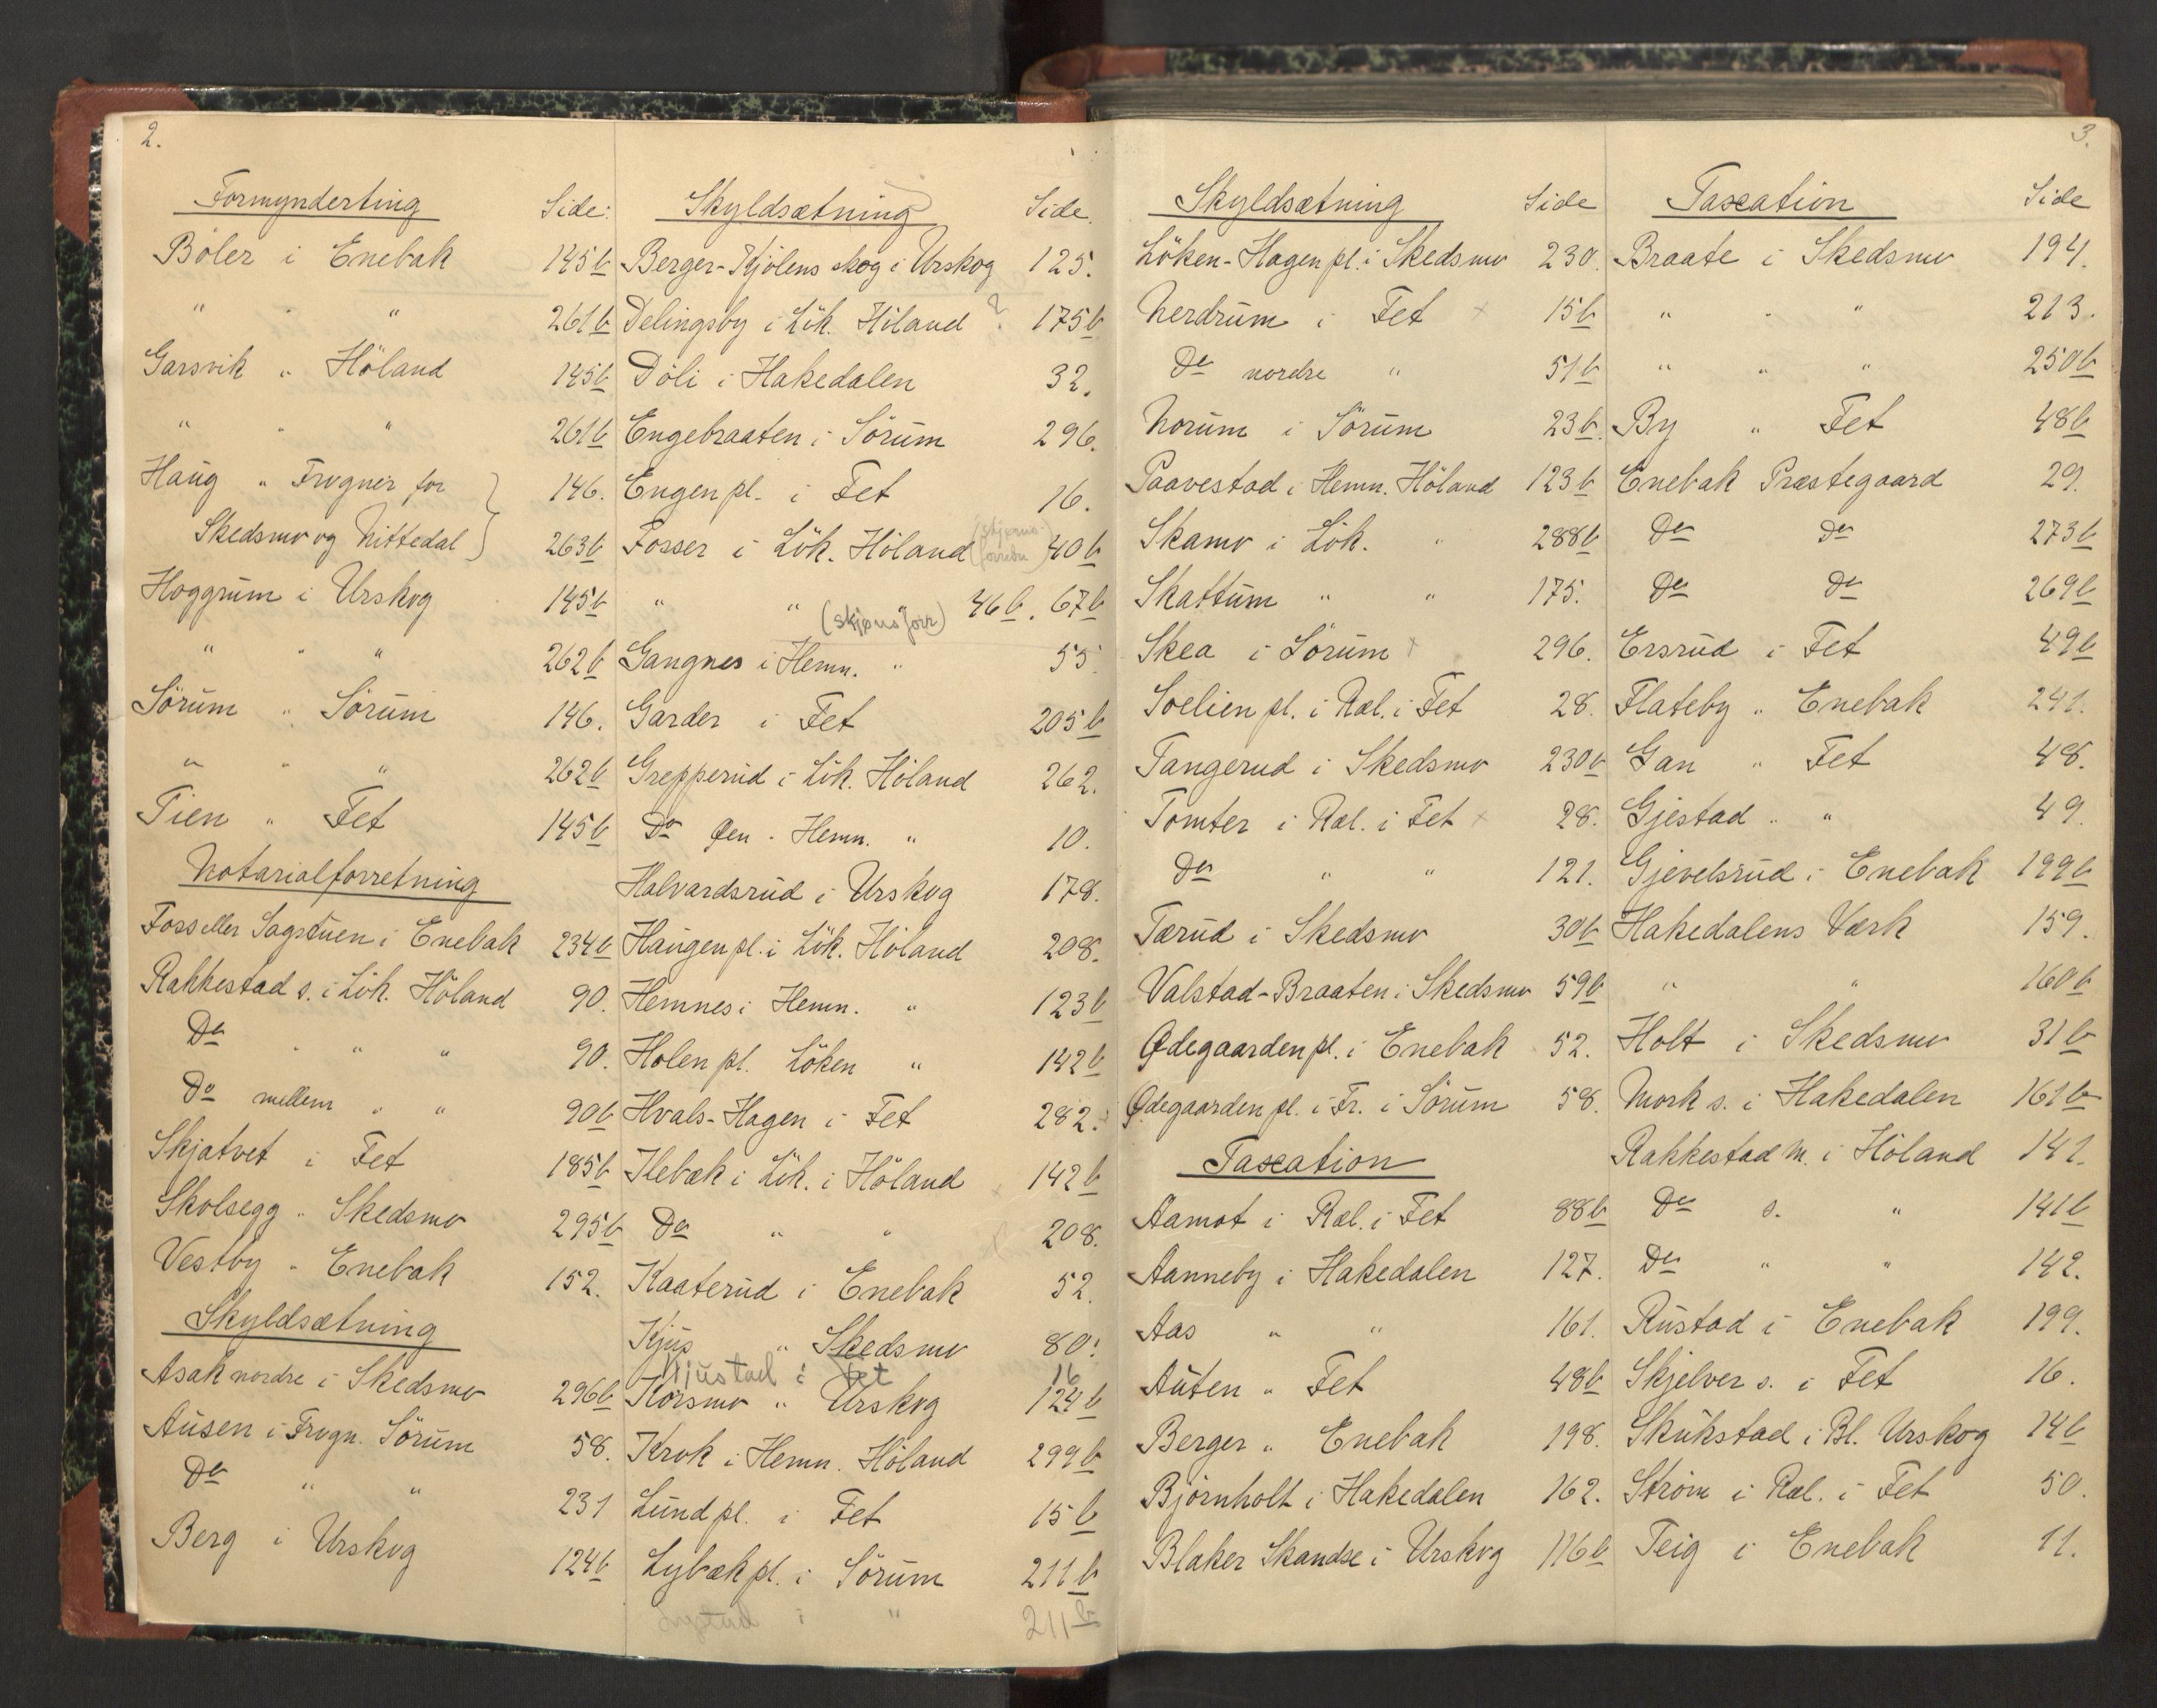 2.
Formynderting Side:
Böler i Enebak 145b
" " 261b
Garsvik " Höland 145b
" " " 261b
Haug " Frogner for 146.
Skedsmo og Nittedal 263b
Hoggrum i Urskog 145b
" " " 262b
Sörum " Sörum 146.
" " " 262b
Tien " Fet 145b
Notarialforretning
Foss eller Sagstuen i Enebak 234b
Rakkestad s. i Lök. Höland 90.
Do " " " 90.
Do mellem " " 90b
Skjatvet i Fet 185b
Skolsegg " Skedsmo 295b
Vestby " Enebak 152.
Skyldsætning
Asak nordre i Skedsmo 296b
Ausen i Frogn. Sörum 58.
Do " " 231
Berg i Urskog 124b
Skyldsætning Side.
Berger-Kjölens skog i Urskog 125.
Delingsby i Lök. Höland ? 175b
Döli i Hakedalen 32.
Engebraaten i Sörum 296.
Engen pl. i Fet 16.
Fosser i Lök. Höland 40b
" " (skjønsforr) 46b. 67b
Gangnes i Hemn. " 55.
Garder i Fet 205b
Grepperud i Lök. Höland 262.
Do Øen - Hemn. " 10.
Halvardsrud i Urskog 178.
Haugen pl. i Lök. Höland 208.
Hemnes i Hemn. " 123b
Holen pl. Löken " 142b
Hvals-Hagen i Fet 282.
Ilebæk i Lök. i Höland 142b
Do " " 208.
Kaaterud i Enebak 52.
Kjus " Skedsmo 80.
Kjustad i Fet 16
Korsmo " Urskog 124b
Krok i Hemn. Höland 299b
Lund pl. i Fet 15b
Lybæk pl. i Sörum 211b
Lystad i " 211b
3.
Skyldsætning Side
Löken-Hagen pl. i Skedsmo 230.
Nerdrum i Fet 15b
Do nordre " 51b
Norum i Sörum 23b.
Paavestad i Hemn. Höland 123b
Skamo i Lök. " 288b
Skattum " " 175.
Skea i Sörum 296.
Soelien pl. i Ræl. i Fet 28.
Tangerud i Skedsmo 230b
Tomter i Ræl. i Fet 28.
Do " " 121.
Tærud i Skedsmo 30b
Valstad-Braaten i Skedsmo 59b
Ødegaarden pl. i Enebak 52.
Ødegaarden pl. i Fr. i Sörum 58.
Taxation
Aamot i Ræl. i Fet 88b
Aanneby i Hakedalen 127.
Aas " " 161.
Auten " Fet 48b
Berger " Enebak 198.
Björnholt i Hakedalen 162.
Blaker Skandse i Urskog 116b
Taxation Side
Braate i Skedsmo 194.
" " " 213.
" " " 250b
By " Fet 48b
Enebak Præstegaard 29.
Do Do 273b
Do Do 269b
Ersrud i Fet 49b
Flateby " Enebak 241.
Gan " Fet 48.
Gjestad " " 49.
Gjevelsrud i Enebak 199b
Hakedalens Værk 159.
" " 160b
Holt i Skedsmo 31b
Mork s. i Hakedalen 161b
Rakkestad m. i Höland 141.
Do s. " 141b
Do " " 142.
Rustad i Enebak 199.
Skjelver s. i Fet 16.
Skukstad i Bl. Urskog 14b
Ström i Ræl. i Fet 50.
Teig i Enebak 11.